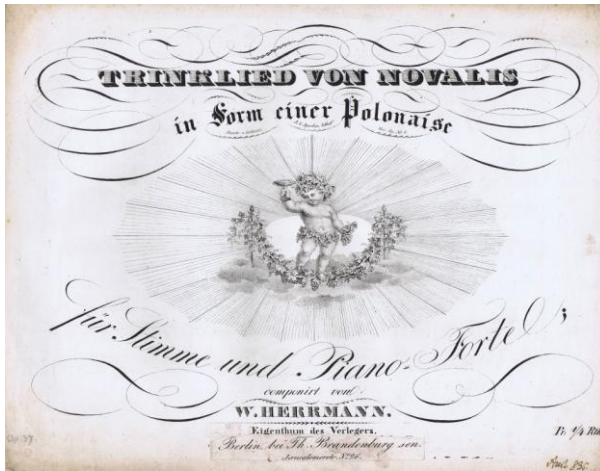 TRINKLIED VON NOVALIS
in Form einer Polonaise
für Stimme und Piano-Forte
componirt von
W. HERRMANN.
Eigenthum des Verlegers.
Berlin bei Th. Brandenburg sen.